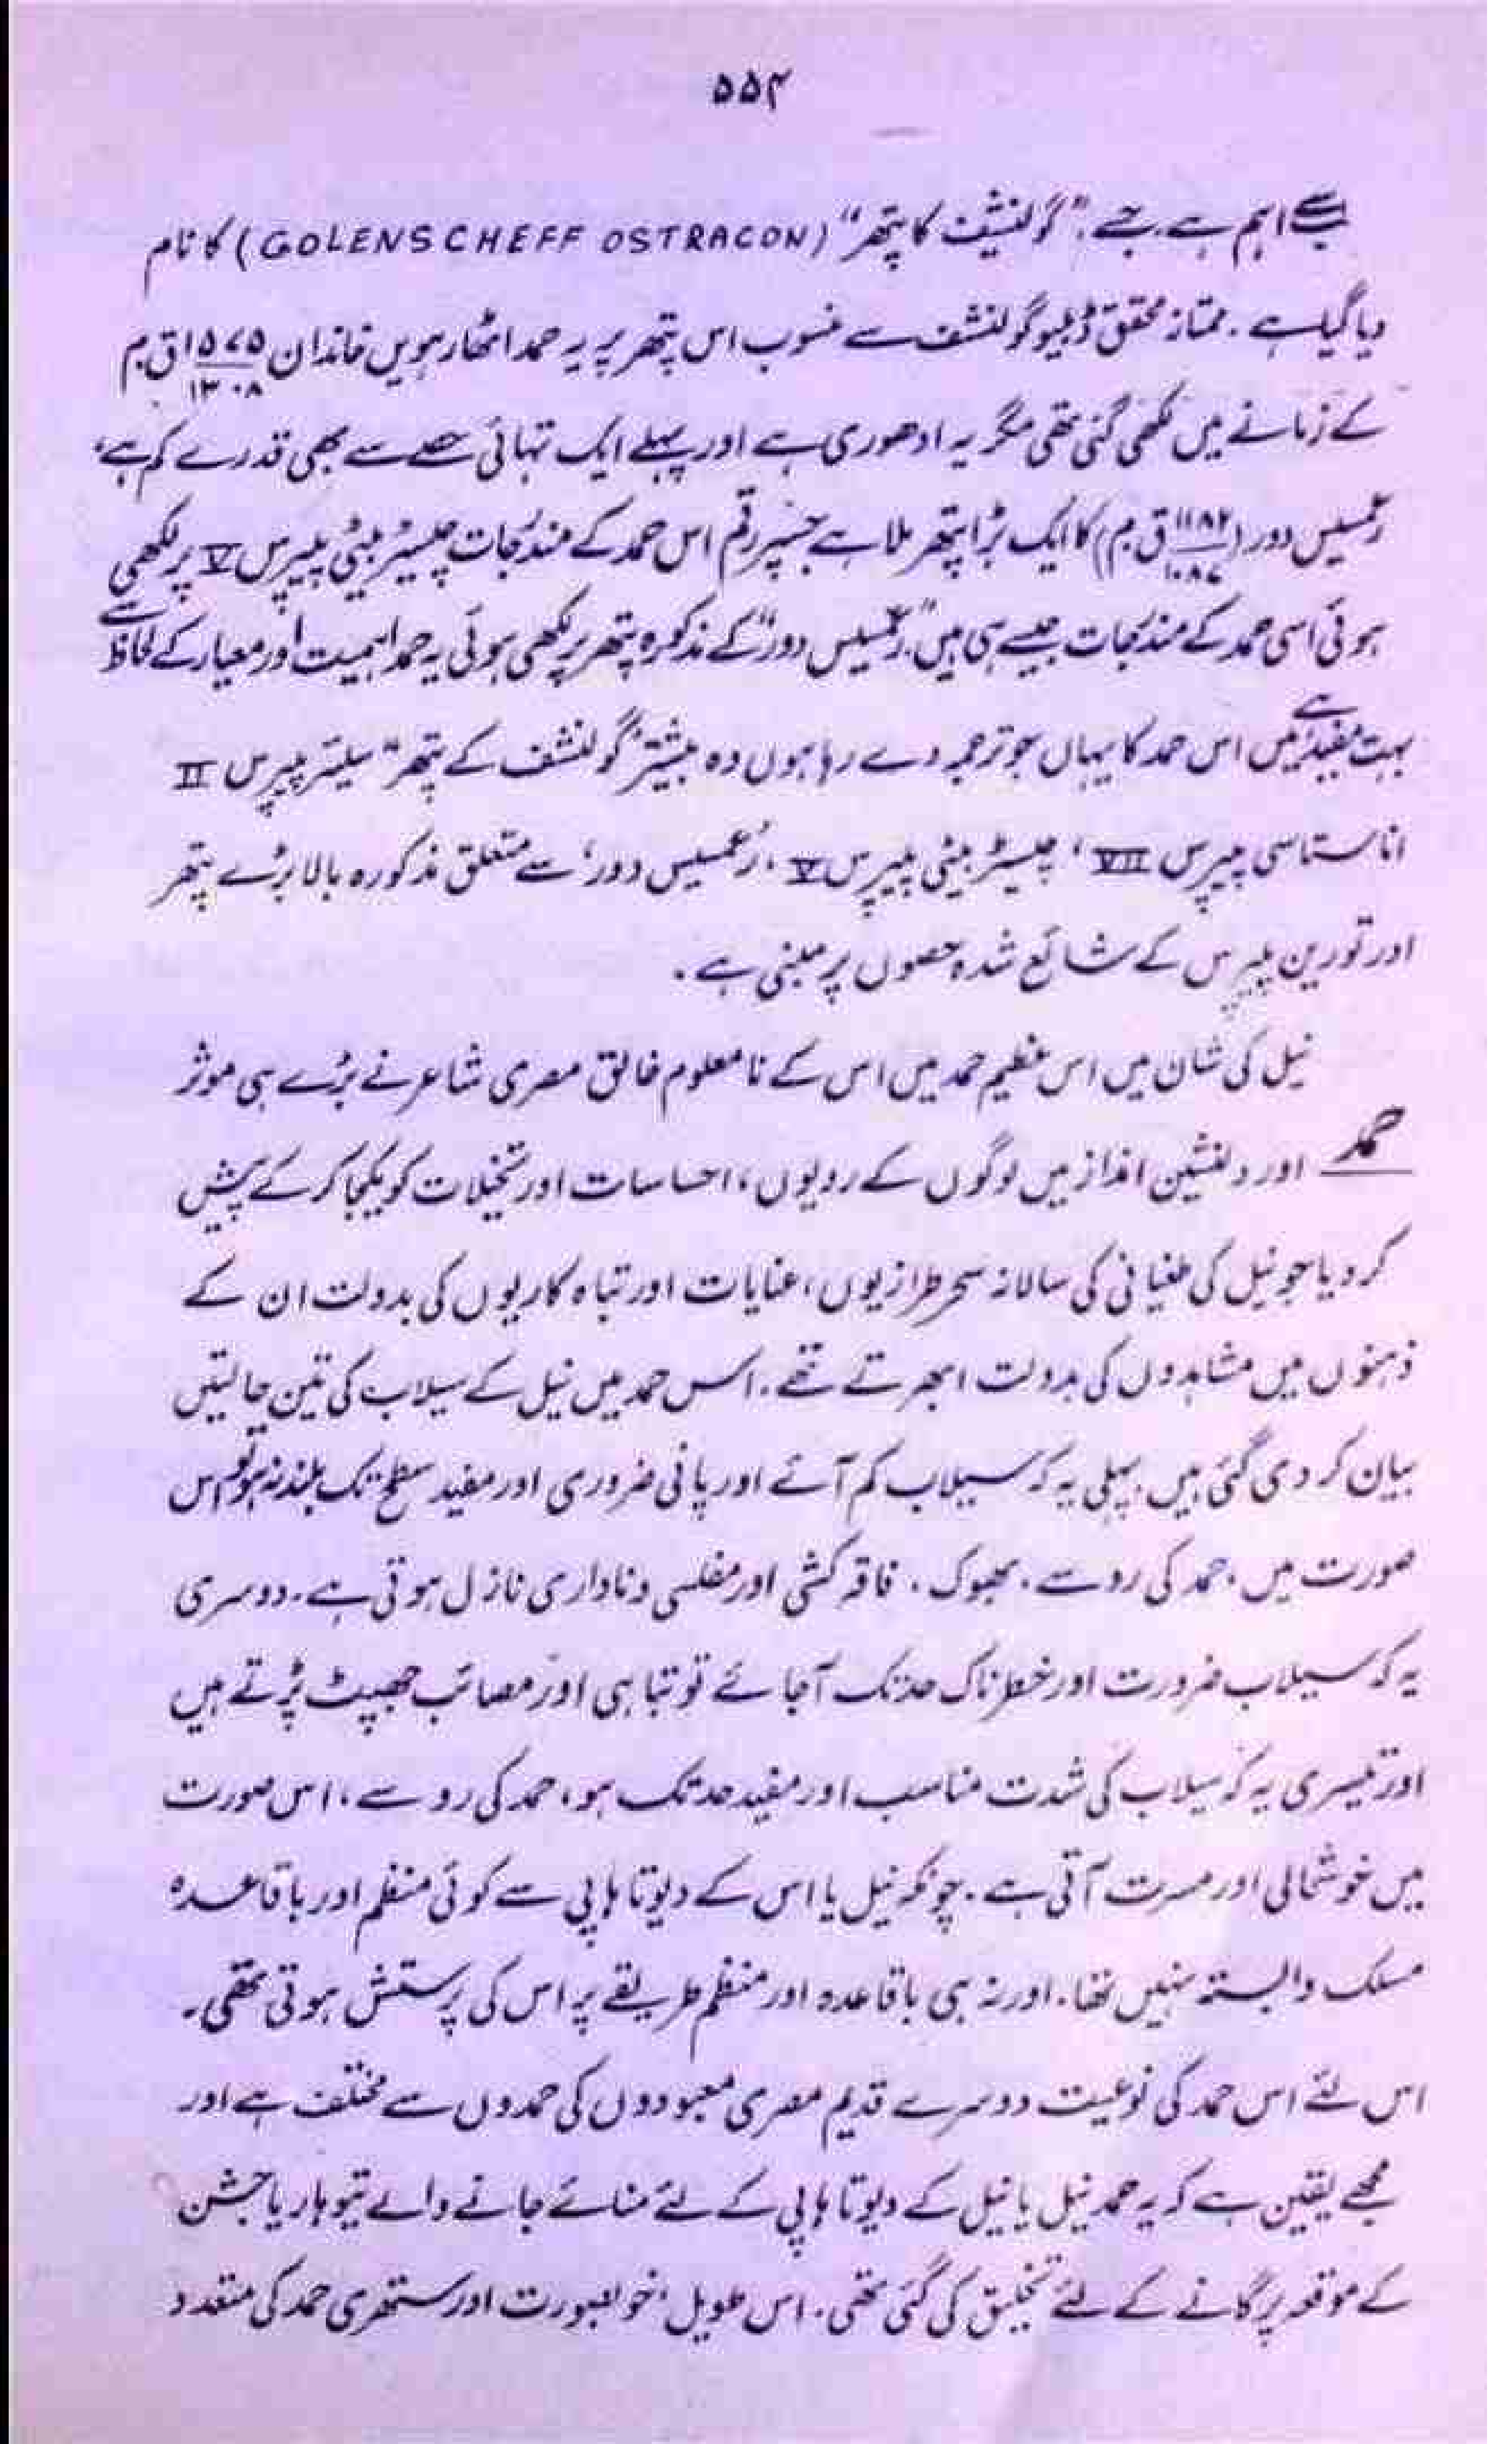 ۵۵۴
سے اہم ہے۔ جسے "گولنشیف کا پتھر" (GOLENSCHEFF OSTRACON) کا نام
دیا گیا ہے۔ ممتاز محقق ڈبلیو گولنشف سے منسوب اس پتھر پر یہ حمد اٹھارہویں خاندان ۱۵۷۵/۱۳۰۸ ق م
کے زمانے میں لکھی گئی تھی مگر یہ ادھوری ہے اور پہلے ایک تہائی حصے سے بھی قدرے کم ہے،
رعمسیس دور (۱۱۸۲/۱۰۸۷ ق م) کا ایک بڑا پتھر ملا ہے جس پر رقم اس حمد کے مندرجات چیسٹر بیٹی پیپرس V پر لکھی
ہوئی اسی حمد کے مندرجات جیسے ہی ہیں۔ "رعمسیس دور" کے مذکورہ پتھر پر لکھی ہوئی یہ حمد اہمیت اور معیار کے لحاظ سے
بہت مفید ہے میں اس حمد کا یہاں جو ترجمہ دے رہا ہوں وہ بیشتر "گولنشف کے پتھر" سیلئر پیپرس II
اناستاسی پیپرس VII، چیسٹر بیٹی پیپرس V، 'رعمسیس دور' سے متعلق مذکورہ بالا بڑے پتھر
اور تورین پیپرس کے شائع شدہ حصوں پر مبنی ہے۔
نیل کی شان میں اس عظیم حمد میں اس کے نامعلوم خالق مصری شاعر نے بڑے ہی موثر
حمد اور دلنشین انداز میں لوگوں کے رویوں، احساسات اور تخیلات کو یکجا کر کے پیش
کر دیا جو نیل کی طغیانی کی سالانہ سحر طرازیوں، عنایات اور تباہ کاریوں کی بدولت ان کے
ذہنوں میں مشاہدوں کی بدولت ابھرتے تھے۔ اس حمد میں نیل کے سیلاب کی تین حالتیں
بیان کر دی گئی ہیں پہلی یہ کہ سیلاب کم آئے اور پانی ضروری اور مفید سطح تک بلند نہ ہو تو اس
صورت میں، حمد کی رو سے، بھوک، فاقہ کشی اور مفلسی و ناداری نازل ہوتی ہے۔ دوسری
یہ کہ سیلاب ضرورت اور خطرناک حد تک آ جائے تو تباہی اور مصائب جھپٹ پڑتے ہیں
اور تیسری یہ کہ سیلاب کی شدت مناسب اور مفید حد تک ہو، حمد کی رو سے، اس صورت
میں خوشحالی اور مسرت آتی ہے۔ چونکہ نیل یا اس کے دیوتا ہاپی سے کوئی منظم اور باقاعدہ
مسلک وابستہ نہیں تھا۔ اور نہ ہی باقاعدہ اور منظم طریقے پر اس کی پرستش ہوتی تھی۔
اس لئے اس حمد کی نوعیت دوسرے قدیم مصری معبودوں کی حمدوں سے مختلف ہے اور
مجھے یقین ہے کہ یہ حمد نیل یا نیل کے دیوتا ہاپی کے لئے منائے جانے والے تیوہار یا جشن
کے موقعہ پر گانے کے لئے تخلیق کی گئی تھی۔ اس طویل، خوبصورت اور ستھری حمد کی متعدد